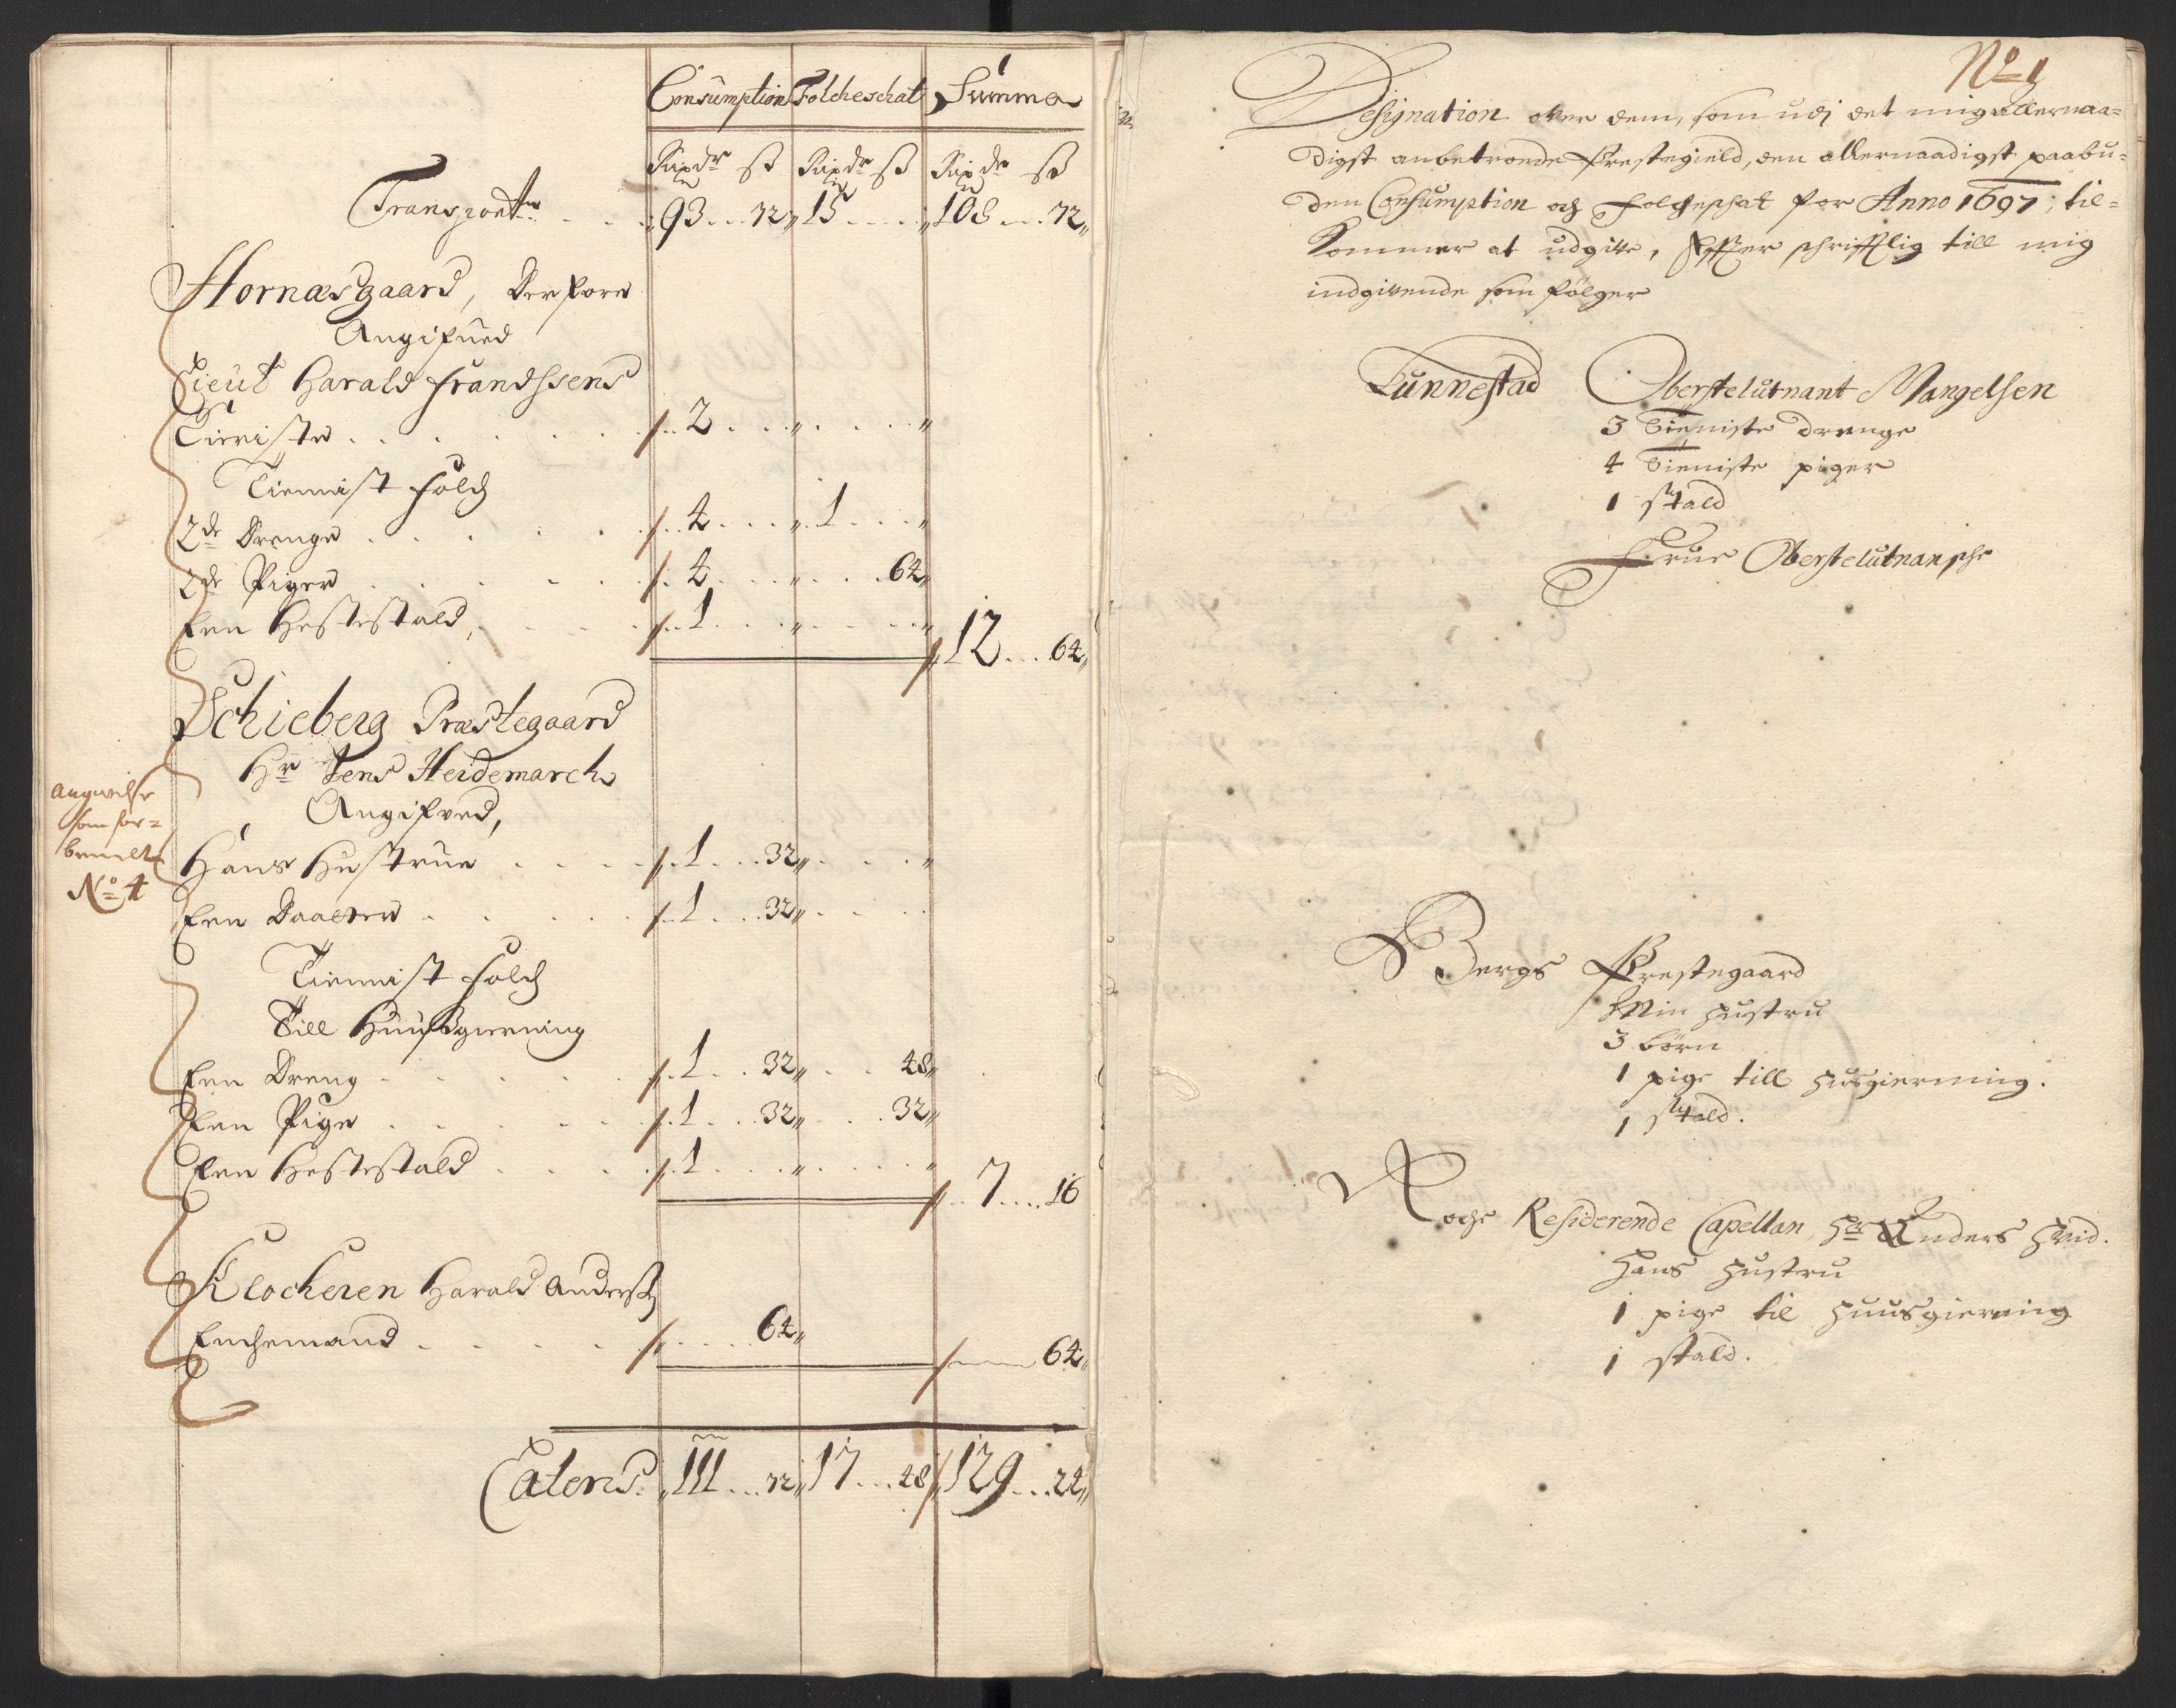 Consumption Folcheschat Summa
Rixdr ß Rixdr ß Rixdr ß
Transport . . . 93 . . 72 15 . . . 108 . . 72
Hornæsgaard, Derfore
Angifued
Lieut Harald Frandssens
Tieniste . . . 2
Tiennist folch
2de Drenge . . . 4 . . . 1
2de Piger . . . 4 . . . 64
Een Hestestald . . . 1
12 . . 64
Schieberg Præstegaard
Hr Jens Heidemarch
Angifved,
Hans Hustrue . . . 1 . . 32
Een Daatter . . . 1 . . 32
Tiennist folch
Till Huusgierning
Een Dreng . . . 1 . . 32 . . 48
Een Pige . . . 1 . . 32 . . 32
Een Hestestald . . . 1
7 . . 16
Klocheren Harald Anderss
Enchemand . . . 64
64
Lateris 111 . . 72 17 . . 48 129 . . 24
som for=
No 4
No 1
Designation over dem, som udj det mig allernaa=
digst anbetroede Prestegield, den allernaadigst paabu=
den Consumption og Folcheschat for Anno 1697, til=
kommer at udgive, effter schrifftlig till mig
indgivende som følger
Lunnestad Oberstelutnant Mangelsen
3 Tieniste drenge
4 Tieniste piger
1 stald
Frue Oberstelutnansche
Bergs Prestegaard
Min Hustru
3 børn
1 pige till husgierning.
1 stald.
Residerende Capellan, Hr Anders Hvid.
Hans Hustru
1 pige til huusgierning
1 stald.